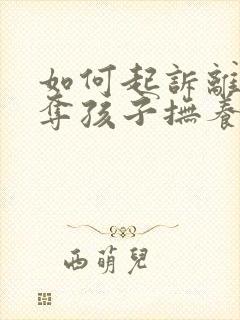 如何起訴離
奪孩子撫養
西萌兒